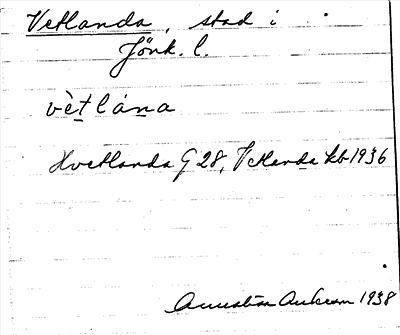 Vetlanda, stad i
Jönk. l.
vètlána
Hvetlanda G 28, Vetlanda kb 1936
1938